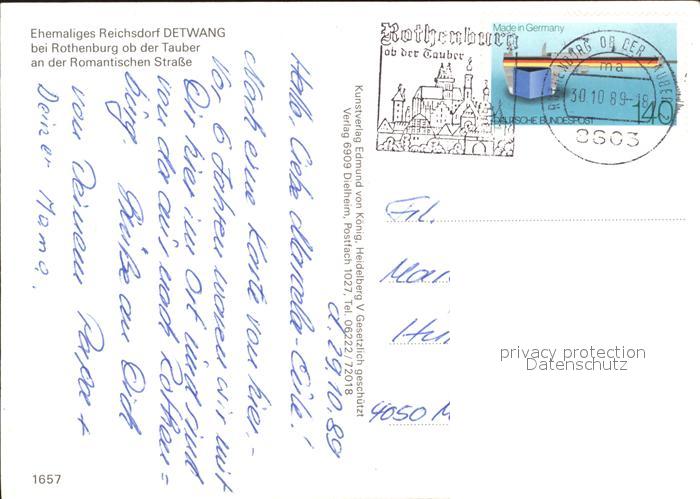 Ehemaliges Reichsdorf DETWANG
bei Rothenburg ob der Tauber
an der Romantischen Straße
Rothenburg
ob der Tauber
Made in Germany
ROTHENBURG OB DER TAUBER
ma
30.10.89-18
140
DEUTSCHE BUNDESPOST
8803
d. 29.10.89
Hallo liebe
Noch eine Karte von hier.-
Vor 6 Jahren waren wir mit
Dir hier im Ort und sind
von da aus nach Rothen=
burg. Grüße an Dich
von Deinem Papa +
Deiner Mama.
Kunstverlag Edmund von König, Heidelberg V Gesetzlich geschützt
Verlag 6909 Dielheim, Postfach 1027, Tel. 06222/72018
Frl.
4050 M
privacy protection
Datenschutz
1657